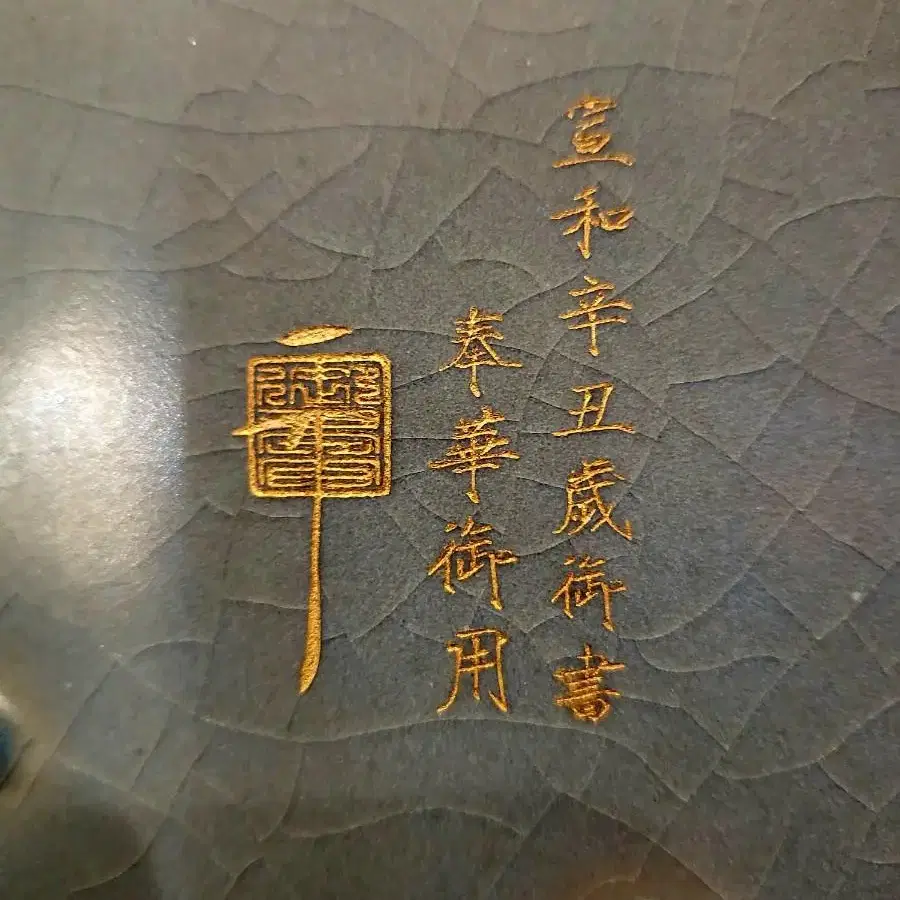 宣和辛丑歲御書
奉華御用
御書